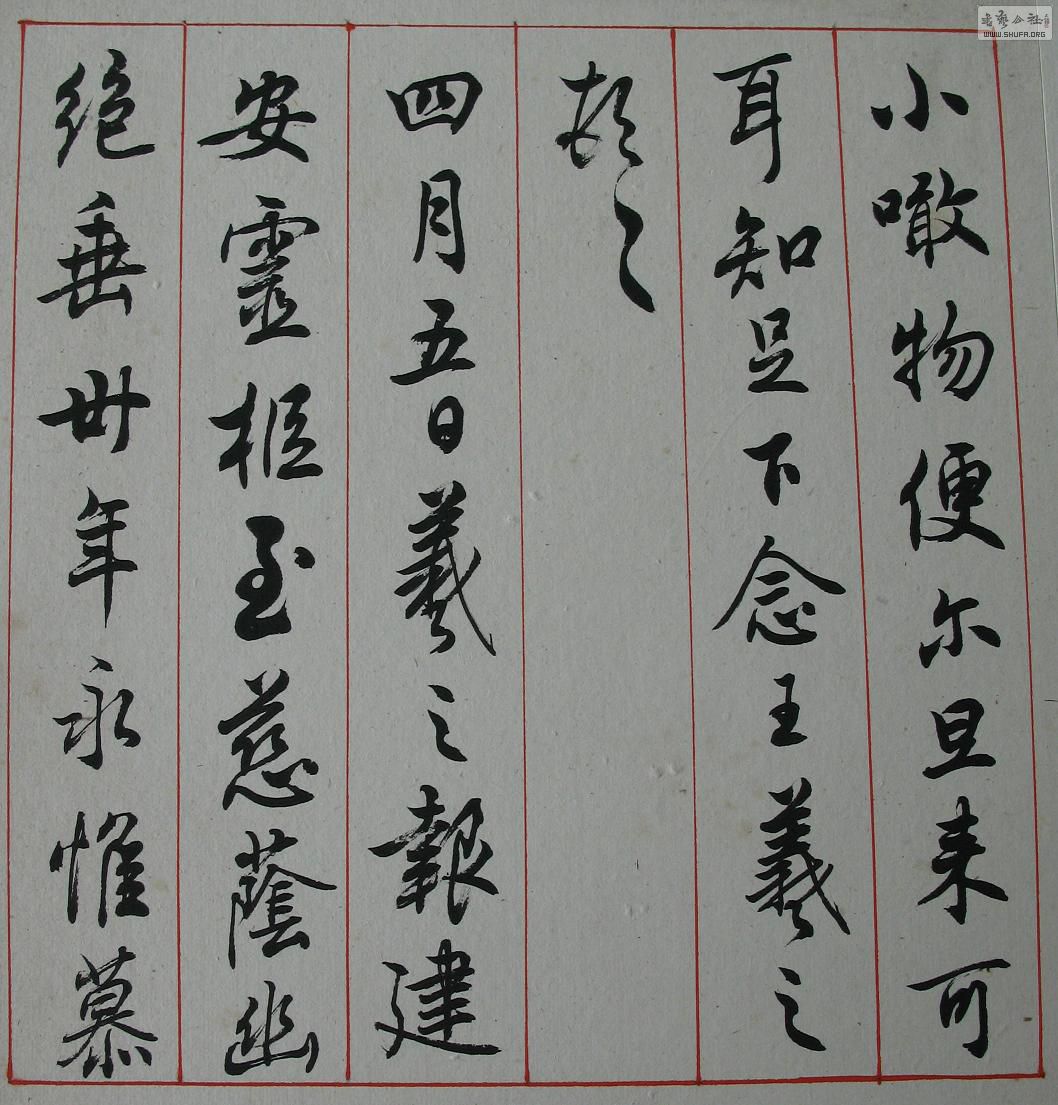 小噉物便尔旦来可
耳知足下念王羲之
頓首
四月五日羲之報建
安靈柩至慈蔭幽
絶垂卅年永惟慕
書藝公社
WWW.SHUFA.ORG